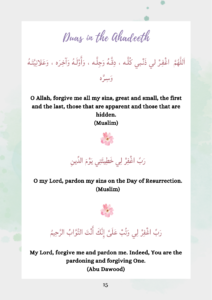 Duas in the Ahadeeth
اَللّٰهُمَّ اغْفِرْ لِي ذَنْبِي كُلَّـه ، دِقَّـهُ وَجِلَّـه ، وَأَوَّلَـهُ وَآخِرَه ، وَعَلَانِيَّتَـهُ
وَسِرَّه
O Allah, forgive me all my sins, great and small, the first
and the last, those that are apparent and those that are
hidden.
(Muslim)
رَبِّ اغْفِرْ لِي خَطِيئَتِي يَوْمَ الدِّينِ
O my Lord, pardon my sins on the Day of Resurrection.
(Muslim)
رَبِّ اغْفِرْ لِي وَتُبْ عَلَيَّ إِنَّكَ أَنْتَ التَّوَّابُ الرَّحِيمُ
My Lord, forgive me and pardon me. Indeed, You are the
pardoning and forgiving One.
(Abu Dawood)
15